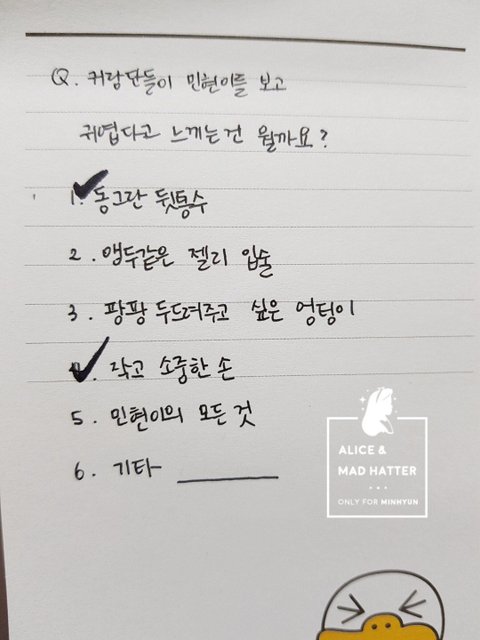 Q. 커람단들이 민현이를 보고
귀엽다고 느끼는건 뭘까요?
1. 동그란 뒷통수
2. 앵두같은 젤리 입술
3. 팡팡 두드려주고 싶은 엉덩이
4. 작고 소중한 손
5. 민현이의 모든 것
6. 기타
ALICE &
MAD HATTER
ONLY FOR MINHYUN